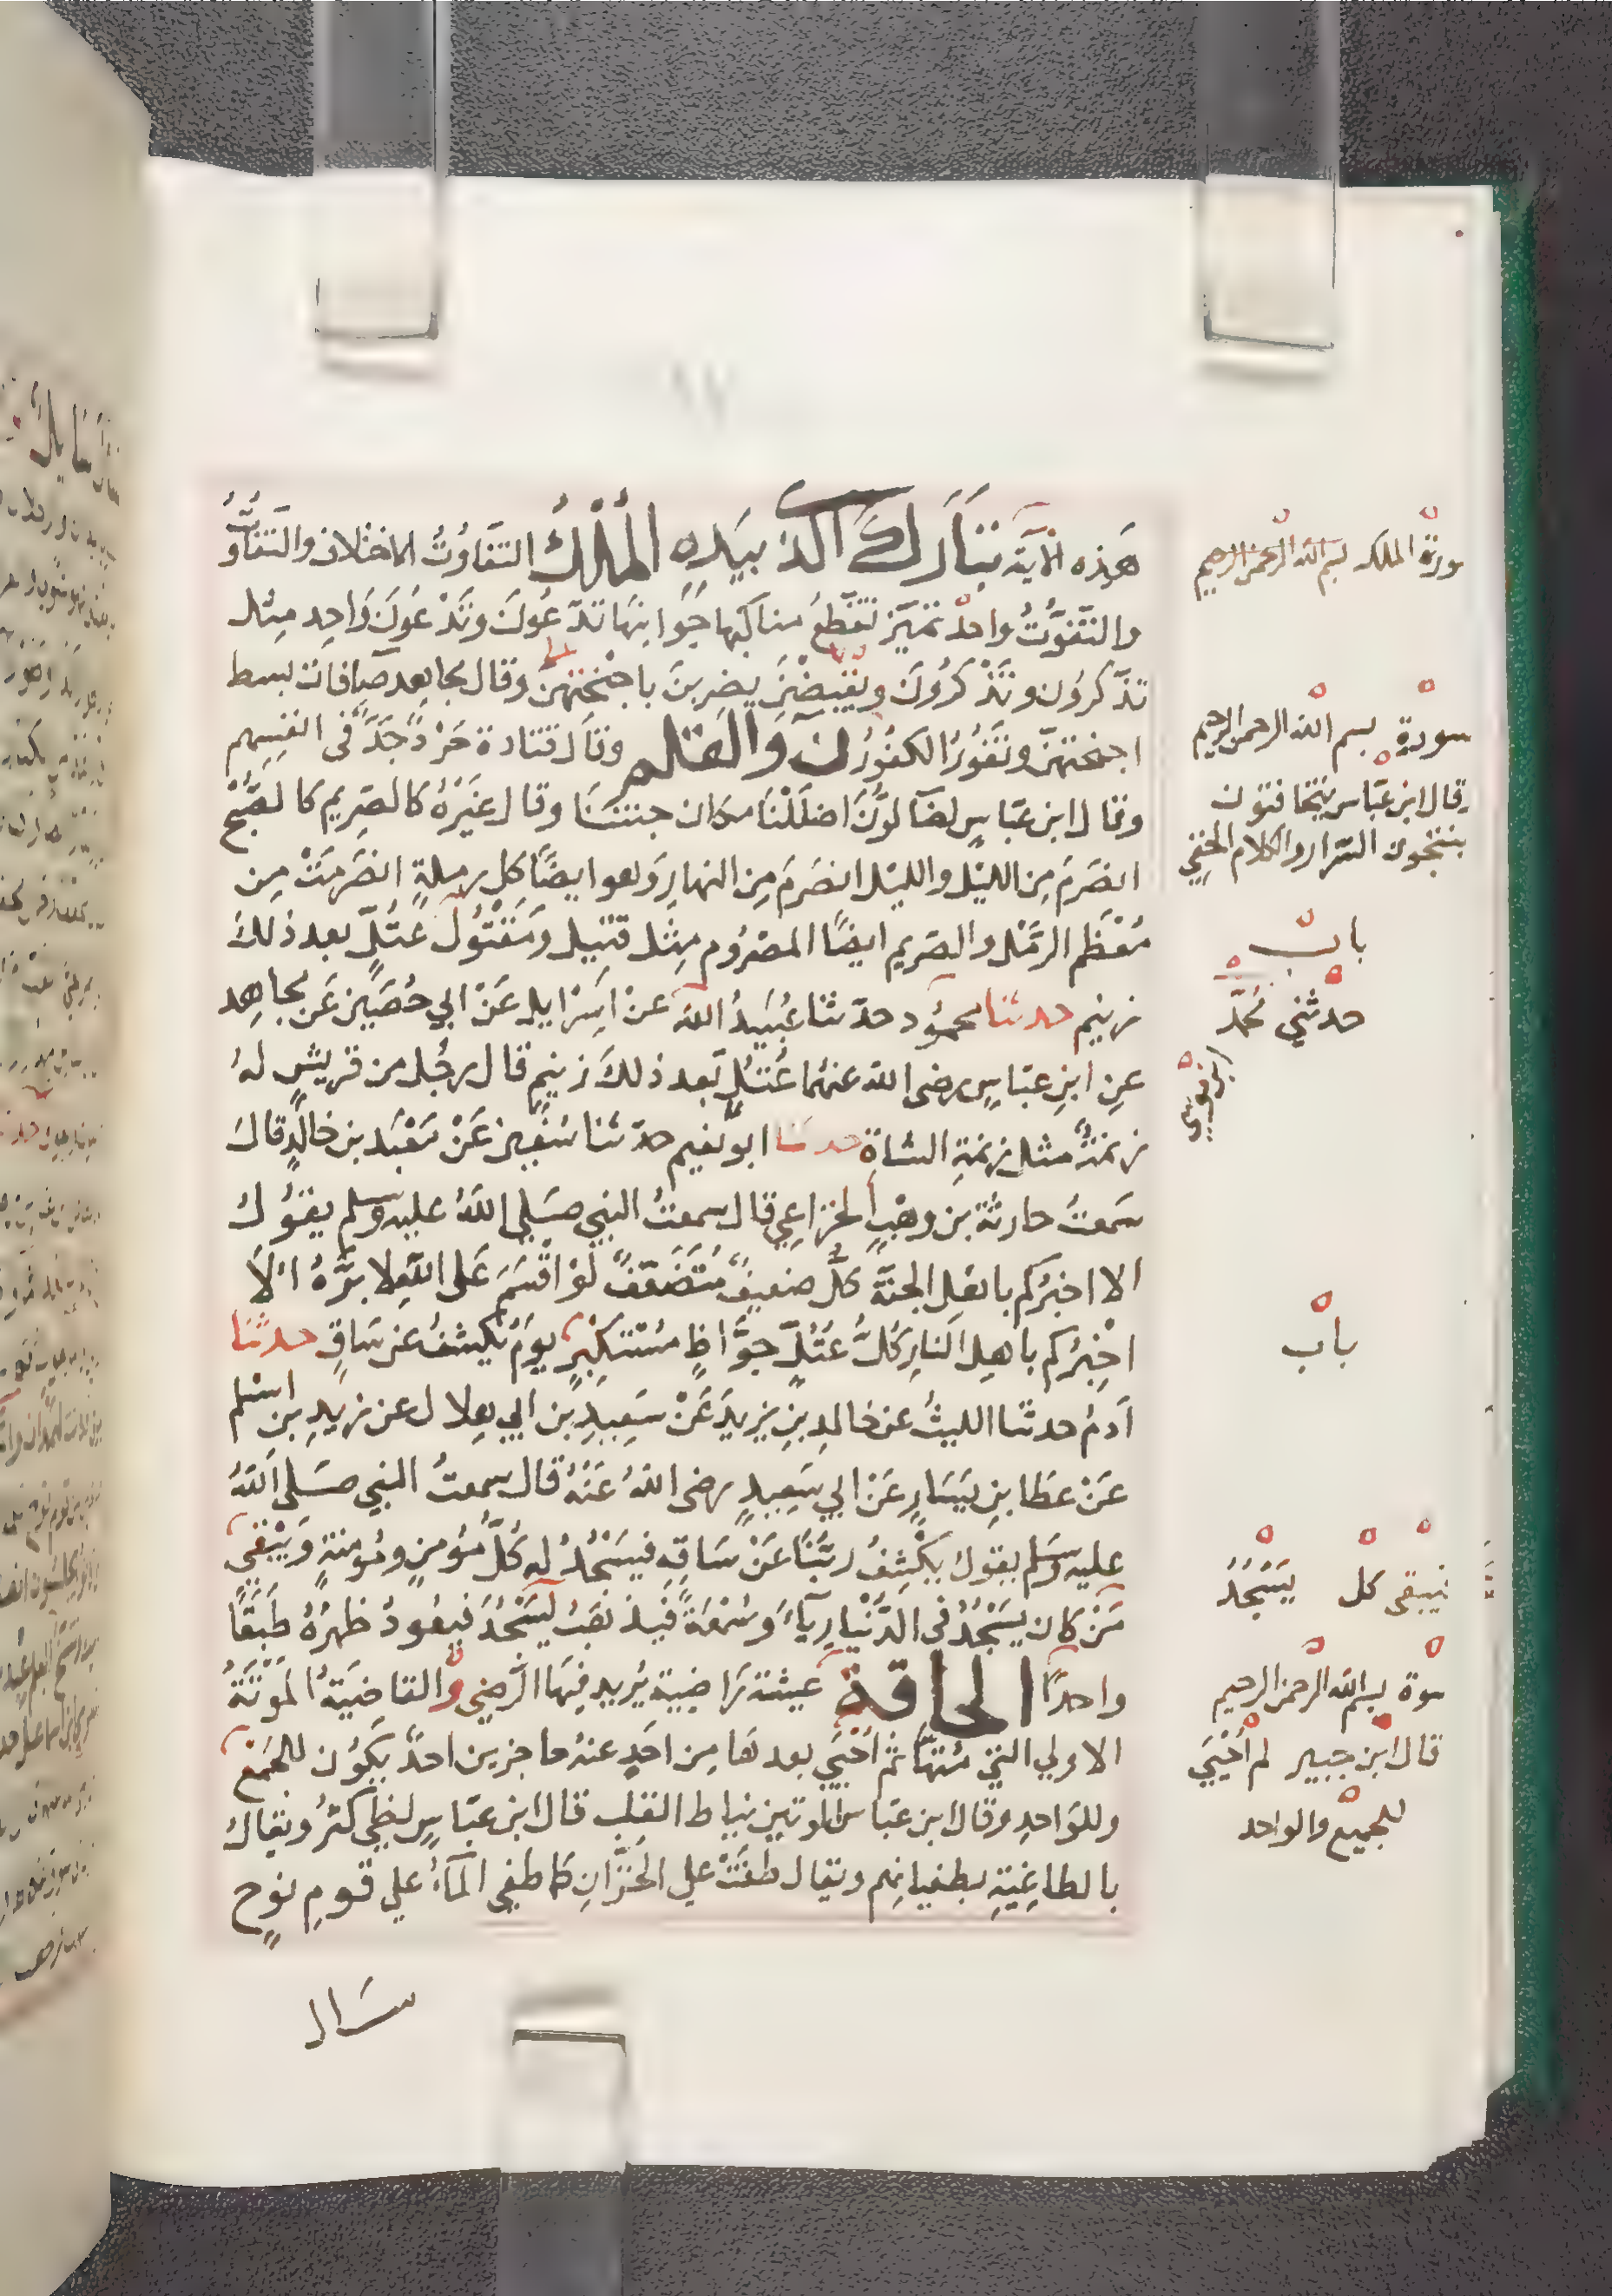 هَذِه الآية تبَارَكَ الَّذي بيَدِهِ المُلْكُ التفَاوُتُ الاختلاف والتَفَاوُتُ
والتَّفَوُّتُ واحدٌ تميَّز تقطَّعُ مناكبها جَوَانِبهَا تدَّعُونَ وتَدْعُونَ وَاحِد مِثل
تذّكرون وتَذْكرُونَ ويَقبِضْنَ يضربنَ باجْنحتهنَّ وقال مجاهد صآفات بسط
اجنحتهنّ ونفُورُ الكفُوُر نٓ وَالقلم وقال قتادة حَرْدٍ جَدٍّ فى انفسِهم
وقال ابن عبّاسٍ لضآلُّونَ اضلَلْنَا مكان جنتنَا وقال غيَرُهُ كالصَرِيم كالصُبْح
انصَرَمَ مِن الليْل والليْل انصَرَمَ مِن النهارِ وَهو ايضًا كل رملةٍ انصَرمَتْ مِن
مُعْظَم الرَّمْل والصَريم ايضًا المصْرُوم مِثل قتيل ومَقْتُول عُتُلٍّ بعد ذلك
زنيم حدثنا محمُود حدّثنا عُبَيدُ الله عنْ اسَرْايل عَنْ ابي حُصَين عَن مجاهِد
عنِ ابنِ عبّاسٍ رضى الله عنهُما عُتُلٍّ بَعد ذلكَ زنيم قال رجُل من قريشٍ لهُ
زنمةٌ مثل زنمةِ الشاة حدثنا ابو نُعيم حدّثنا سُفيٰن عَنْ مَعْبَد بن خالدٍ قالَ
سَمعتُ حارثة بن وهْبٍ الخزاعِي قال سمعتُ النبي صَلي اللهُ عليه وسلم يقوُل
الا اخبرُكم باهْلِ الجنَّة كلُّ ضعيفٍ مُتَضَعّفٍ لَوْ اقْسَمَ عَلى اللهِ لابرَّهُ الَا
اخْبِرُكم باهلِ النارِ كُلُّ عُتُلٍّ جوَّاظٍ مسْتكبِرٍ يومَ يُكْشفُ عن سَاقٍ حدثنا
آدمُ حدثنا الليثُ عن خالدِ بنِ يزيدَ عَنْ سَعِيدِ بن ابي هِلال عن زيدِ بنِ اسْلم
عَنْ عَطا بنِ يَسَارٍ عَنْ ابي سَعِيدٍ رضى اللهُ عَنْهُ قال سمعتُ النبي صَلى اللهُ
عليه وسَلم يقول يكْشِفُ ربّنَا عَنْ سَاقِه فيسَجُدُ له كُلُّ مُؤمنٍ ومُؤمنةٍ ويَبْقي
مَنْ كان يسَجُدُ في الدُّنْيا ريآءً وَسُمْعةً فيذهَبُ ليَسْجُدَ فيعُودُ ظهرُهُ طَبَقًا
واحدًا الحاقة عيشة رَاضية يُريد فيهَا الرّضي والقاضيَةُ المَوْتَةُ
الاولي التي مُتُهَا ثم أحْيَي بعدهَا مِن احَدٍ عنهُ حاجزين احدٌ يكُون للجَمْعِ
وللوَاحدِ وقال ابن عبّاس الوتين نياط القلب قال ابن عبّاسٍ لطغي كثُر ويقال
بالطاغِيَةِ بطغيانِهم ويقال طغَتْ علي الخزّانِ كما طغي المآءُ علي قومِ نوحٍ
سَال
سورة الملك بسم الله الرحمن الرحيم
سورة بسم الله الرحمن الرحيم
وقال ابن عبّاس يتخافتون
ينتجون السّرار والكلام الخفي
باب
حدثني محمّد
باب
فيبقى كل يَسْجُدُ
سورة بسم الله الرحمن الرحيم
قال ابن جبير لم أُحْيَيَ
للجميع والواحد